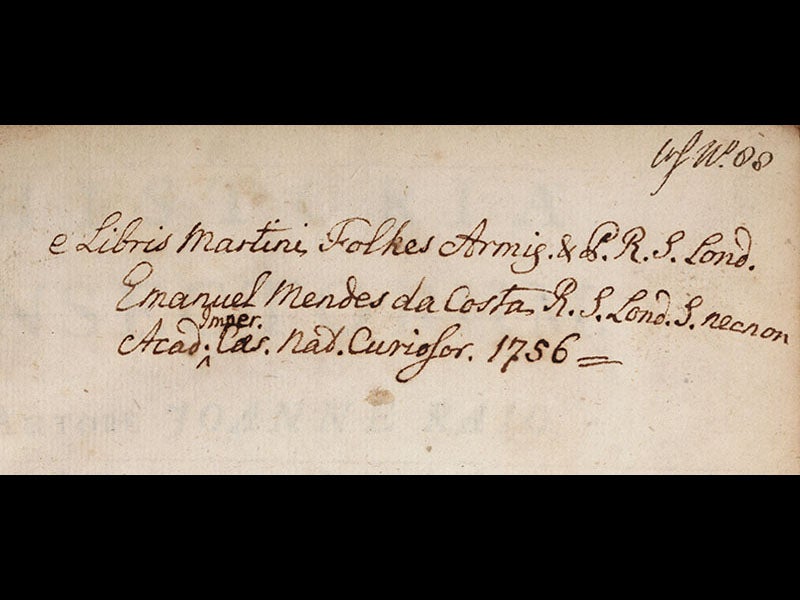 Nº. 88
e Libris Martini Folkes Armig. & P. R. S. Lond.
Emanuel Mendes da Costa R. S. Lond. S. necnon
Imper.
Acad. ^ Cæs. Nat. Curiosor. 1756